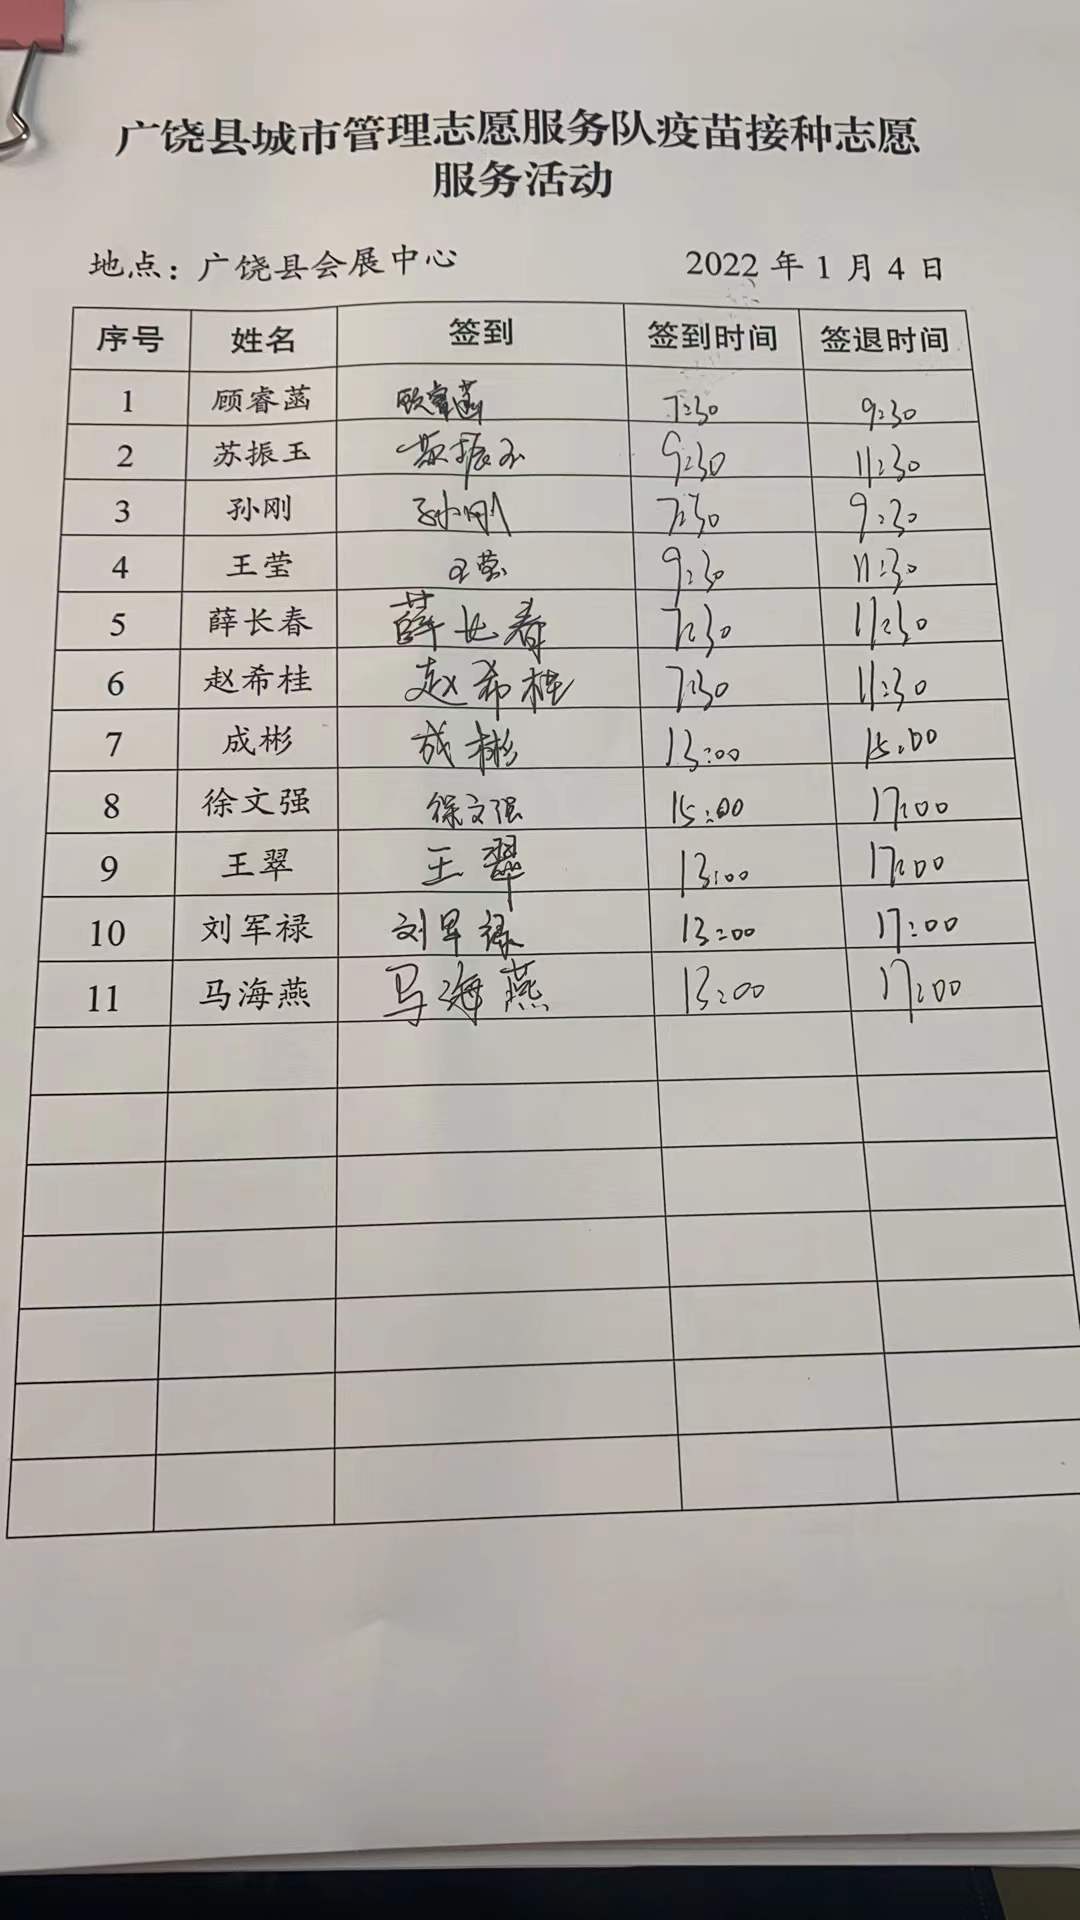 广饶县城市管理志愿服务队疫苗接种志愿
服务活动
地点：广饶县会展中心 2022 年 1 月 4 日
序号 姓名 签到 签到时间 签退时间
1 顾睿菡 顾睿菡 7:30 9:30
2 苏振玉 苏振玉 9:30 11:30
3 孙刚 孙刚 7:30 9:30
4 王莹 王莹 9:30 11:30
5 薛长春 薛长春 7:30 11:30
6 赵希桂 赵希桂 7:30 11:30
7 成彬 成彬 13:00 15:00
8 徐文强 徐文强 15:00 17:00
9 王翠 王翠 13:00 17:00
10 刘军禄 刘军禄 13:00 17:00
11 马海燕 马海燕 13:00 17:00